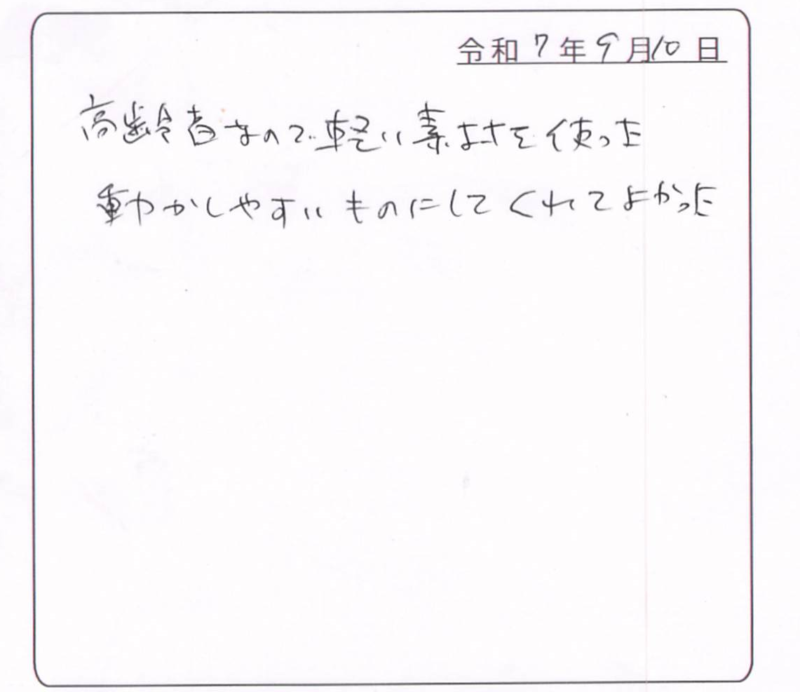 令和7年9月10日
高齢者なので軽い素材を使った
動かしやすいものにしてくれてよかった